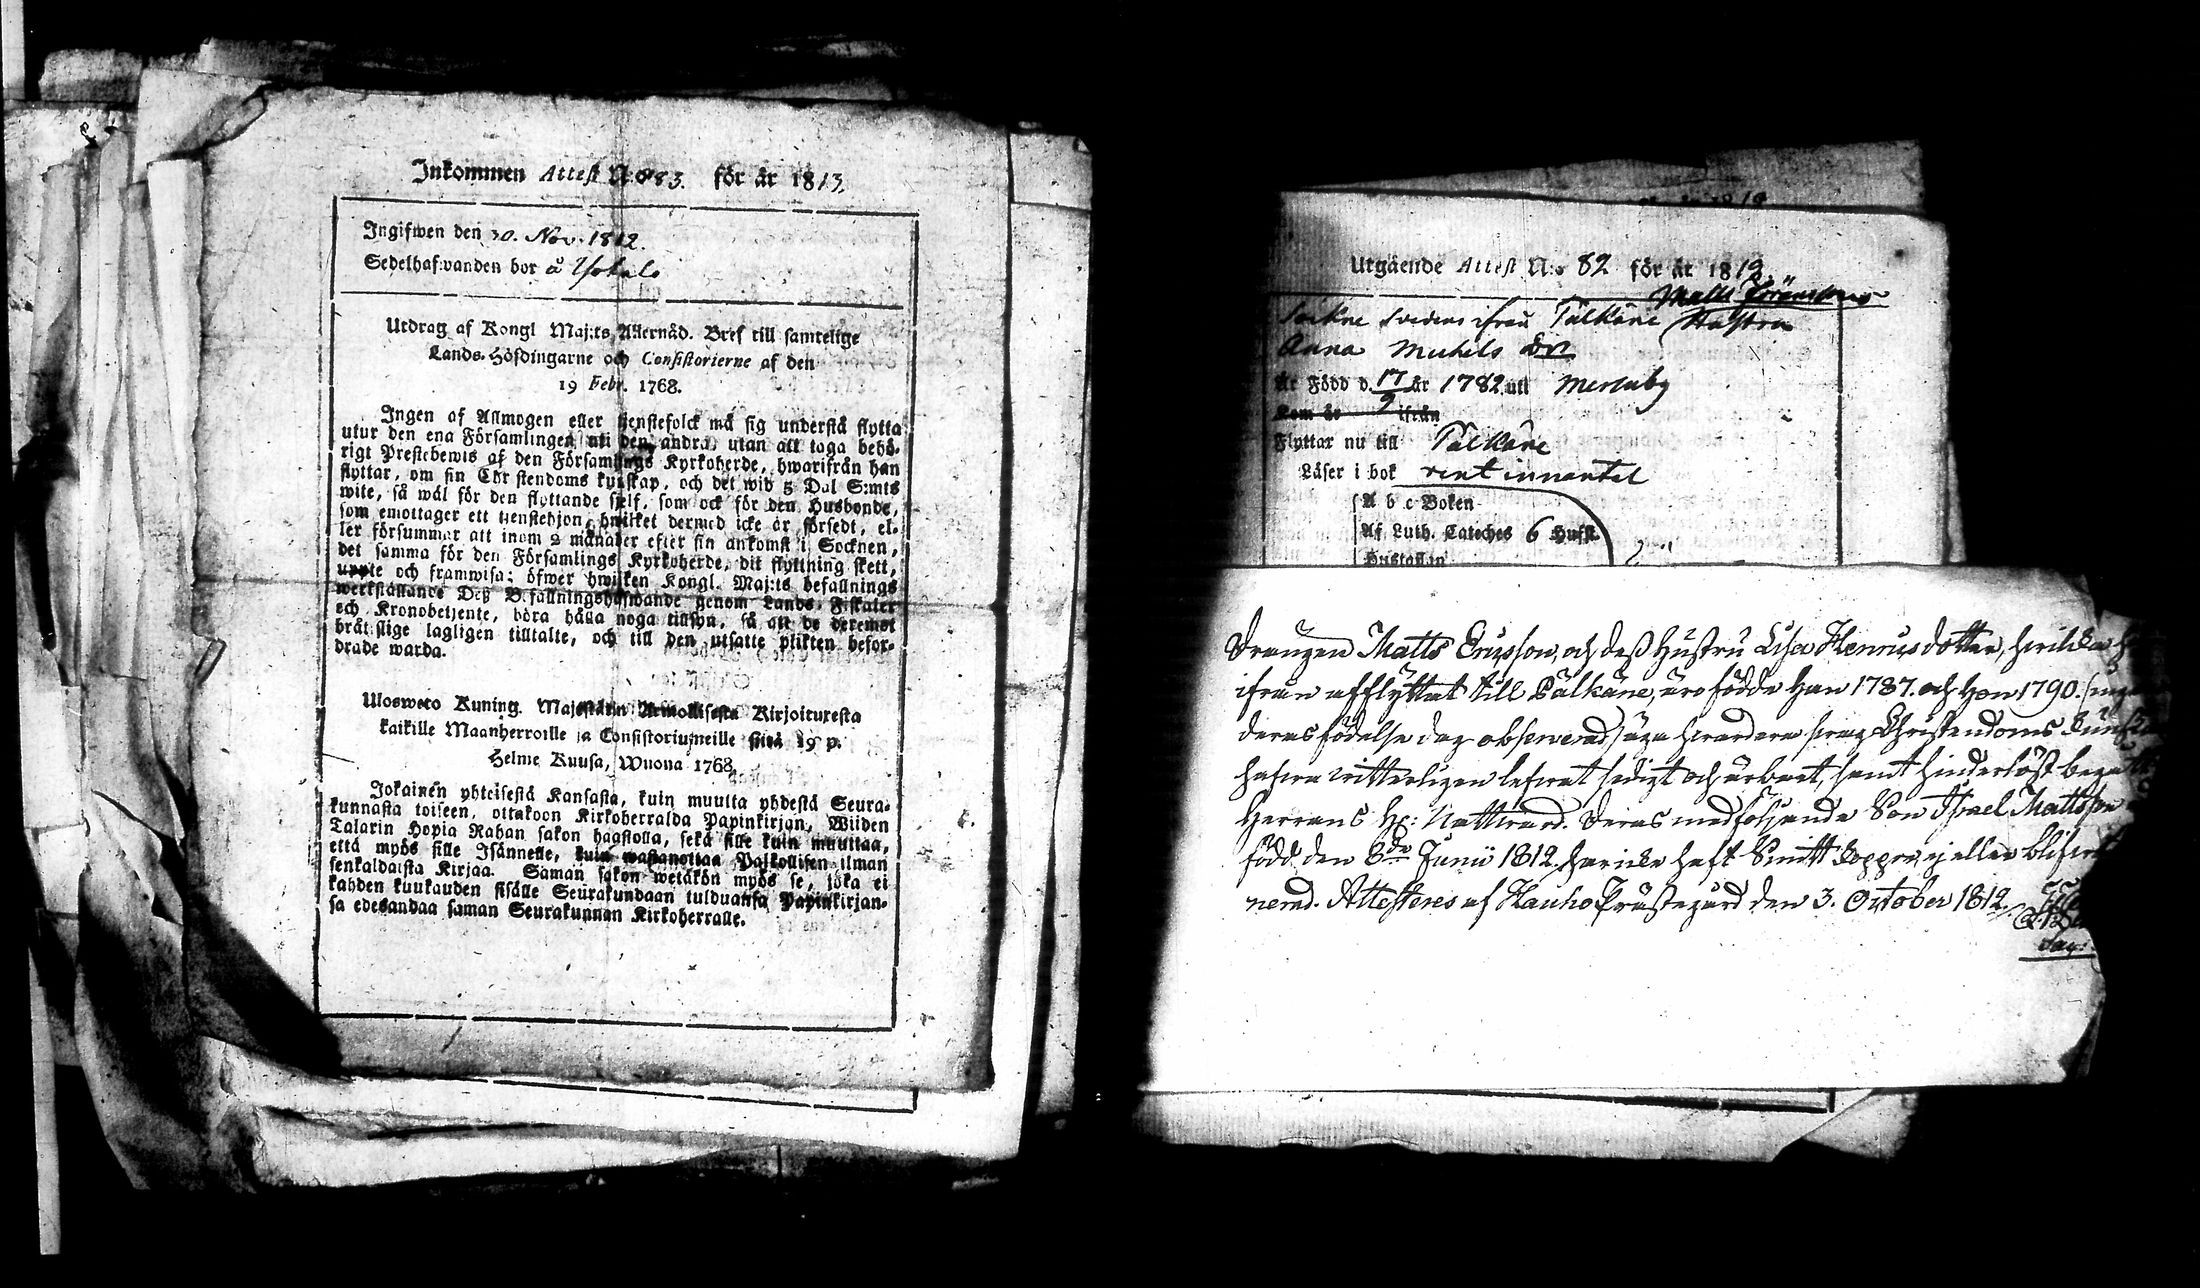 Inkommen Attest N:o 83. för år 1813.
Ingifwen den 30. Nov. 1812.
Sedelhafwanden bor å
Utdrag af Kongl Maj:ts Allernåd. Bref till samtelige
Lands-Höfdingarne och Consistorierne af den
19 Febr. 1768.
Ingen af Allmogen eller tjenstefolck må sig understå flytta
utur den ena Församlingen uti den andra, utan att taga behö-
rigt Prestebewis af den Församlings Kyrkoherde, hwarifrån han
flyttar, om sin Christendoms kunskap, och det wid 5 Dal S:mts
wite, så wäl för den flyttande sjelf, som ock för den Husbonde,
som emottager ett tjenstehjon, hwilket dermed icke är försedt, el-
ler försummar att inom 2 månader efter sin ankomst i Socknen,
det samma för den Församlings Kyrkoherde, dit flyttning skett,
uppte och framwisa; öfwer hwilken Kongl. Maj:ts befallnings
werkställande Deß Befallningshafwande genom Lands Fiskaler
och Kronobetjente, böra hålla noga tillsyn, så att de deremot
bråtslige lagligen tilltalte, och till den utsatte plikten befor-
drade warda.
Ulosweto Kuning. Majestätin Armollisesta Kirjoituresta
kaikille Maanherroille ja Consistoriumeille siitä 19 p.
Helme Kuusa, Wuona 1768.
Jokainen yhteisestä Kansasta, kuin muutta yhdestä Seura-
kunnasta toiseen, ottakoon Kirkoherralda Papinkirjan, Wiiden
Talarin Hopia Rahan sakon haastolla, sekä sille kuin muuttaa,
että myös sille Isännelle, kuin wastanottaa Palkollisen ilman
senkaldaista Kirjaa. Saman sakon wetäkön myös se, joka ei
kahden kuukauden sisälle Seurakundaan tulduansa Papinkirjan-
sa edesandaa saman Seurakunnan Kirkoherralle.
Utgående Attest N:o 82 för år 1812.
Matts
ifrån Pälkäne Hustru
Anna Michels Dr
Är Född d. 17/9 år 1782 uti
Kom år ifrån
Flyttar nu till Pälkäne
Läser i bok rent innantil
A b c Boken
Af Luth. Cateches 6 Hufst.
Hustaflan
Drängen Matts Ericsson, och deß Hustru Lisa Henricsdotter, hvilka
ifrån afflyttat till Pälkäne, äro födde han 1787. och hon 1790.
deras födelse dag observerad, äga hvardera svag Christendoms
hafva vitterligen lefvat sedigt och ärbart, samt hinderlöst
Herrans H: Nattvard. Deras medföljande Son Israel Mattsson
född den 8de Junii 1812 har icke haft Smitt koppor, ej eller blifvit
nerad. Attesteres af Hauho Prästegård den 3. October 1812.